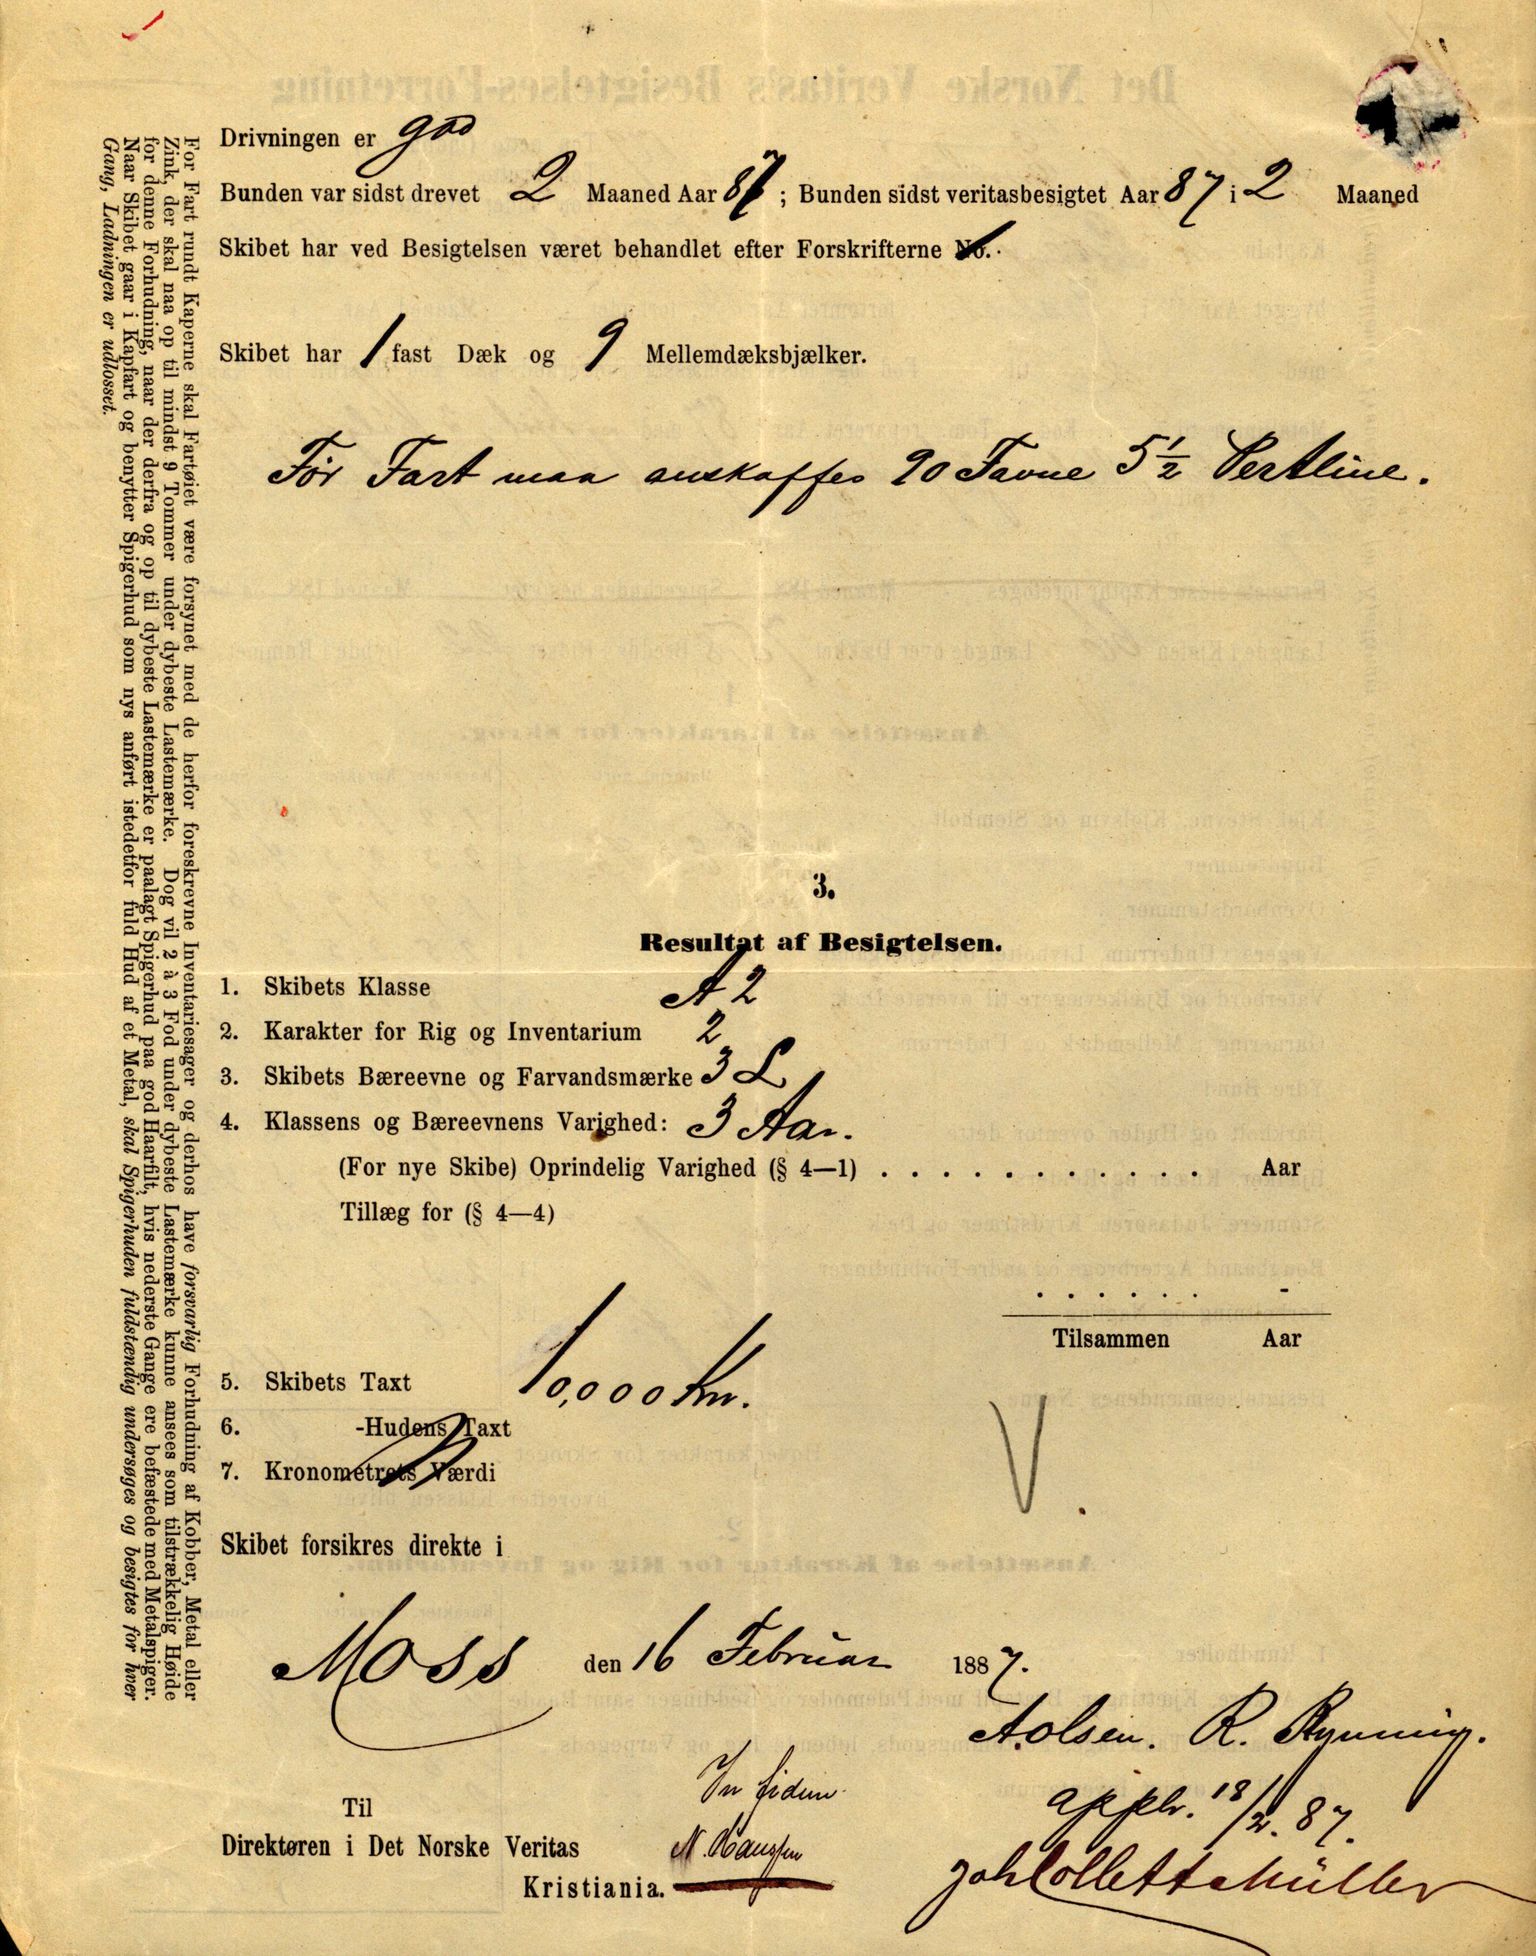 Drivningen er god
Bunden var sidst drevet 2 Maaned Aar 87 ; Bunden sidst veritasbesigtet Aar 87 i 2 Maaned
Skibet har ved Besigtelsen været behandlet efter Forskrifterne No.
Skibet har 1 fast Dæk og 9 Mellemdæksbjælker.
Før Fart maa anskaffes 90 Favne 5½ Pertline.
3.
Resultat af Besigtelsen.
1. Skibets Klasse A 2
2. Karakter for Rig og Inventarium 2
3. Skibets Bæreevne og Farvandsmærke 3 L
4. Klassens og Bæreevnens Varighed: 3 Aar.
(For nye Skibe) Oprindelig Varighed (§ 4—1) . . . . . . . . . . . Aar
Tillæg for (§ 4—4)
. . . . . . -
Tilsammen Aar
5. Skibets Taxt 10,000 Kr.
6. -Hudens Taxt
7. Kronometrets Værdi
V.
Skibet forsikres direkte i
Moss den 16 Februar 1887.
A. Olsen. R. Rynning.
In fidem
appb. 18/2. 87.
Til
Direktøren i Det Norske Veritas
N. Hanssen
Kristiania.
Joh Collett Müller
For Fart rundt Kaperne skal Fartøiet være forsynet med de herfor foreskrevne Inventariesager og derhos have forsvarlig Forhudning af Kobber, Metal eller
Zink, der skal naa op til mindst 9 Tommer under dybeste Lastemærke. Dog vil 2 à 3 Fod under dybeste Lastemærke kunne ansees som tilstrækkelig Høide
for denne Forhudning, naar der derfra og op til dybeste Lastemærke er paalagt Spigerhud paa god Haarfilt, hvis nederste Gange ere befæstede med Metalspiger.
Naar Skibet gaar i Kapfart og benytter Spigerhud som nys anført istedetfor fuld Hud af et Metal, skal Spigerhuden fuldstændig undersøges og besigtes for hver
Gang, Ladningen er udlosset.